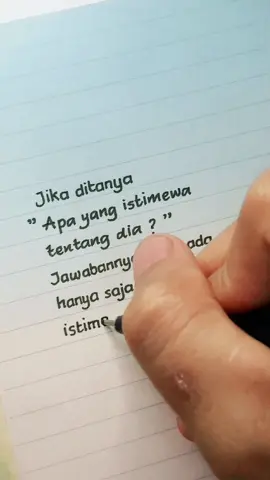 Jika ditanya
" Apa yang istimewa
tentang dia ? "
Jawabannya ada
hanya saja
istime